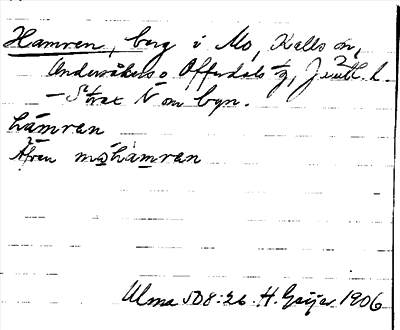 Hamren, berg i Mo, Kalls sn,
Undersåkers o Offerdals tg, Jemtl. l.
– Strax N om byn.
hamren
Även mohamren
Ulma 508:26. H. Geijer 1906